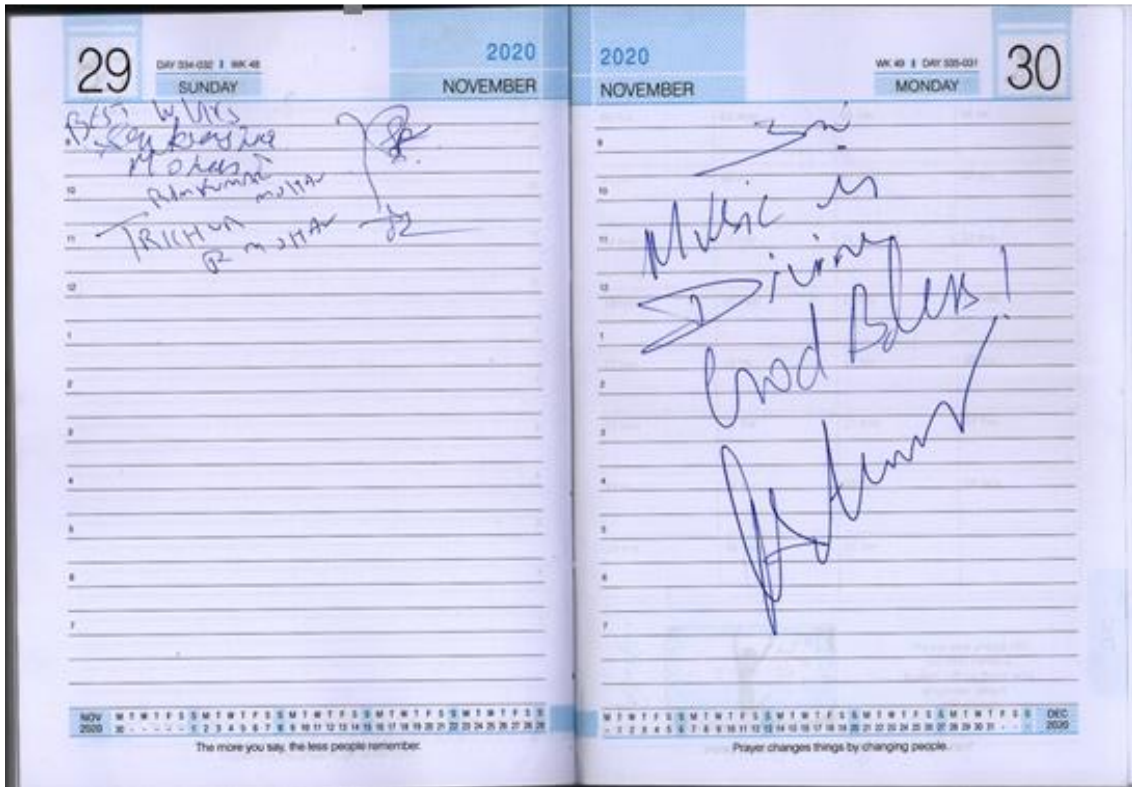 29
DAY 334-032 WK 48
SUNDAY
2020
NOVEMBER
BEST
MOHAN
RAMKUMAR
MOHAN
TRICHUR
R MOHAN
9
10
11
12
1
2
3
4
5
6
7
NOV
2020
M T W T F S S M T W T F S S M T W T F S S M T W T F S S M T W T F S S
30 - - - - - 1 2 3 4 5 6 7 8 9 10 11 12 13 14 15 16 17 18 19 20 21 22 23 24 25 26 27 28 29
The more you say, the less people remember.
2020
NOVEMBER
WK 49 DAY 335-031
MONDAY
30
Music is
Divine
God Bless!
9
10
11
12
1
2
3
4
5
6
7
M T W T F S S M T W T F S S M T W T F S S M T W T F S S M T W T F S S
- 1 2 3 4 5 6 7 8 9 10 11 12 13 14 15 16 17 18 19 20 21 22 23 24 25 26 27 28 29 30 31 - - -
DEC
2020
Prayer changes things by changing people.